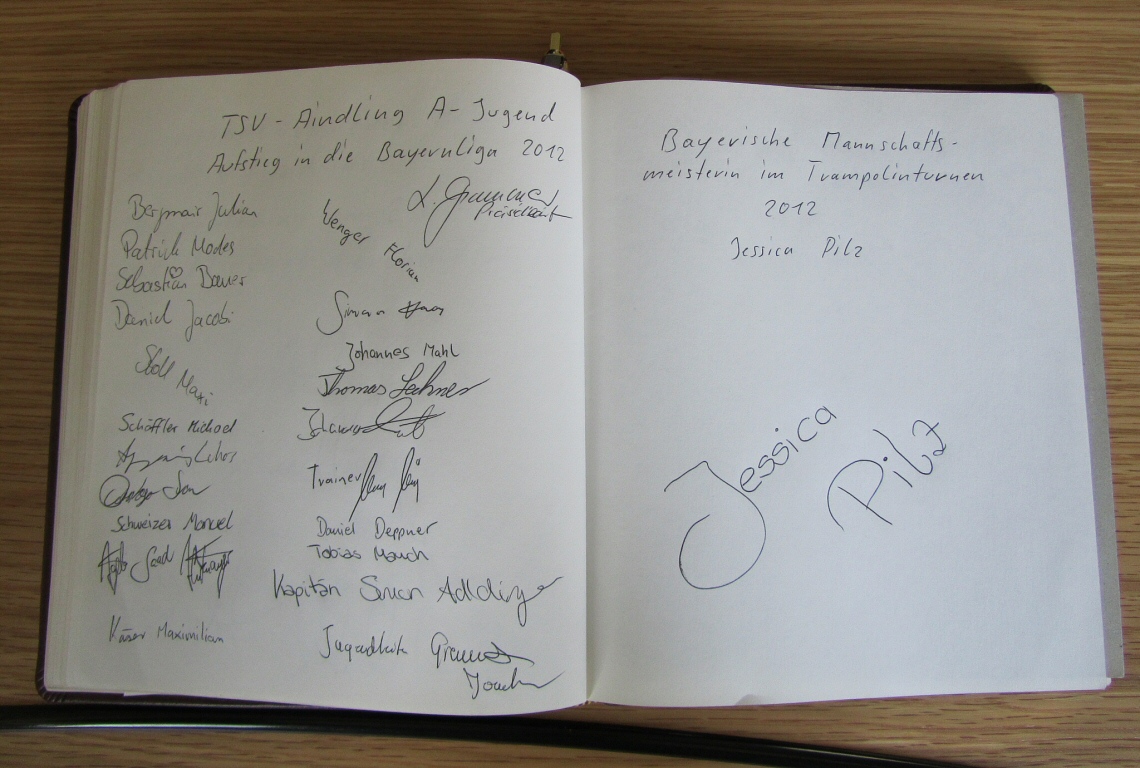 TSV - Aindling A-Jugend
Aufstieg in die Bayernliga 2012
Bergmair Julian
Patrick Modes
Sebastian Bauer
Daniel Jacobi
Stoll Maxi
Schäffler Michael
Schweizer Manuel
Saad
Käser Maximilian
L. Grammer
Wenger Florian
Simon
Johannes Mahl
Thomas Lechner
Trainer
Daniel Deppner
Tobias Mauch
Kapitän Simon Adldinger
Jugendleiter
Bayerische Mannschafts-
meisterin im Trampolinturnen
2012
Jessica Pilz
Jessica
Pilz